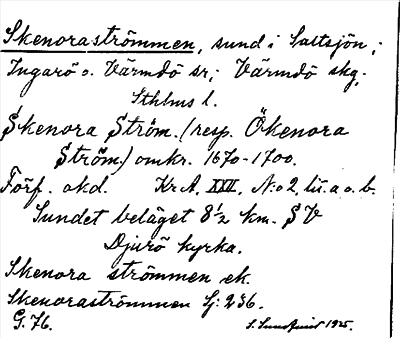 Skenoraströmmen, sund i Saltsjön,;
Ingarö o. Värmdö sr,; Värmdö skg,
Sthlms l.
Skenora Ström. (resp. Ökenora
Ström.) omkr. 1670-1700.
Förf. okd. Kr A. XXII. N:o 2, lit. a o. b.
Sundet beläget 8½ km. SV
Djurö kyrka.
Skenora strömmen ek.
Skenoraströmmen Lj: 236.
G. 76. S. Sundquist 1925.